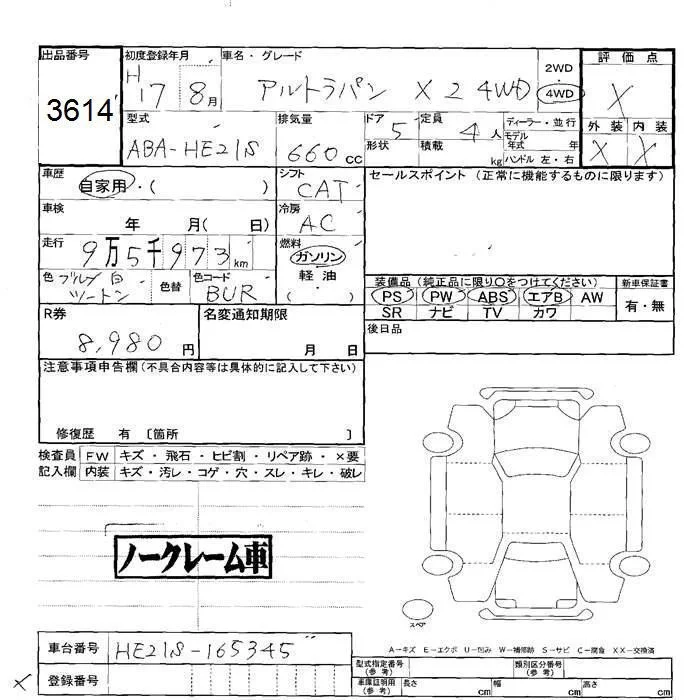 出品番号 初度登録年月 車名・グレード 2WD 評価点
3614 H17 8月 アルトラパン X2 4WD 4WD X
型式 排気量 ドア 5 定員 4人 ディーラー・並行 外装 内装
ABA-HE21S 660cc 形状 積載 kg モデル年式 年 X X
ハンドル 左・右
車歴 自家用・( ) シフト CAT セールスポイント (正常に機能するものに限ります)
車検 年 月( 日) 冷房 AC
走行 9万5千973km 燃料 ガソリン
軽油
( )
色 ブルー/白 ツートン 色替 色コード BUR
装備品 (純正品に限り○をつけてください) 新車保証書
PS PW ABS エアB AW 有・無
SR ナビ TV カワ
R券 名変通知期限 後日品
8,980円 月 日
注意事項申告欄 (不具合内容等は具体的に記入して下さい)
修復歴 有 〔箇所 〕
検査員 FW キズ・飛石・ヒビ割・リペア跡・×要
記入欄 内装 キズ・汚レ・コゲ・穴・スレ・キレ・破レ
ノークレーム車
スペア
A-キズ E-エクボ U-凹み W-補修跡 S-サビ C-腐食 XX-交換済
車台番号 HE21S-165345
登録番号
X
型式指定番号 (参考) 類別区分番号 (参考)
車庫証明用 (参考) 長さ cm 幅 cm 高さ cm